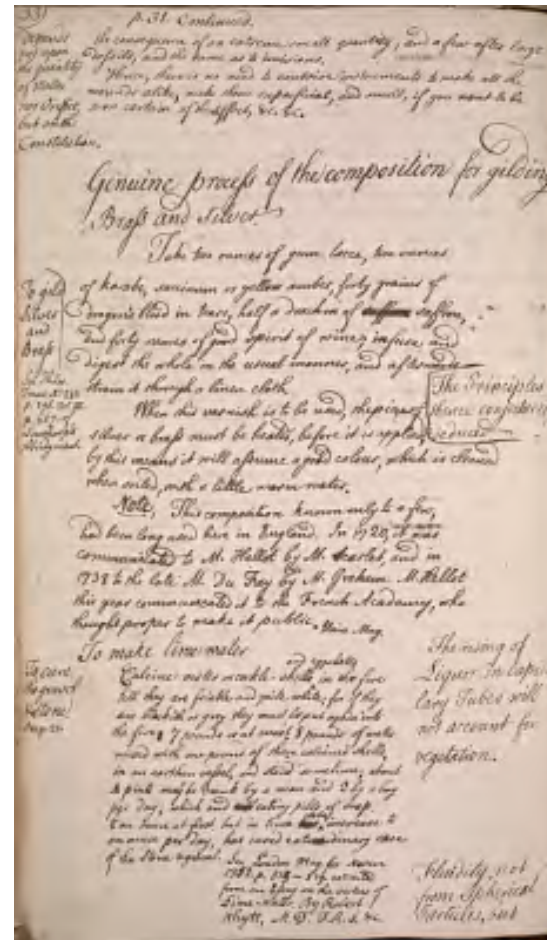 33)
p. 31. Continued.
the consequence of an extream small quantity, and a few after large
deposits, and the same as to
Hence, there is no need to instruments to make all the
wounds alike, make them superficial, and small, if you want to be
certain of the effect, &c. &c.
Depends
upon
the quality
of
but on the
Constitution.
Genuine process of the composition for gilding
Brass and Silver.
Take two ounces of gum lacca, two ounces
To gild
Silver
and
Brass
of karabe, or yellow amber, forty grains of
dragon's blood in tears, half a drachm of saffron,
and forty ounces of good spirit of wine; infuse and
digest the whole in the usual manner, and afterwards
strain it through a linen cloth.
When this varnish is to be used, the piece of
silver or brass must be heated, before it is applied
by this means it will assume a good colour, which is cleaned
when soiled, with a little warm water.
The Principles
Note, This composition known only to a few,
had been long used here in England. In 1720, it was
communicated to M. Hellot by M. Scarlet, and in
1738 to the late M. Du Fay by M. Graham. M. Hellot
this year communicated it to the French Academy, who
thought proper to make it public. Mag.
To make lime water
To cure
the gravel
Stone
Calcine oister shells, in the fire
till they are friable and white; for if they
are blackish or grey they must be put again into
the fire; 7 pounds or at most 8 pounds of water
mixed with one pound of these calcined shells,
in an earthen vessel, and stand sometime; about
4 pints may be drank by a man and 2 by a boy
per day, which and eating pills of soap,
at first, but in time increase to
an ounce per day, has cured extraordinary case
of the Stone
In London Mag for
from an Essay on the virtues of
Lime-Water. By Robert
Whytt, M.D. F.R.S. &c.
The rising of
Liquor in capil
lary Tubes will
not account for
vegetation.
Fluidity, not
from Spherical
Particles, but